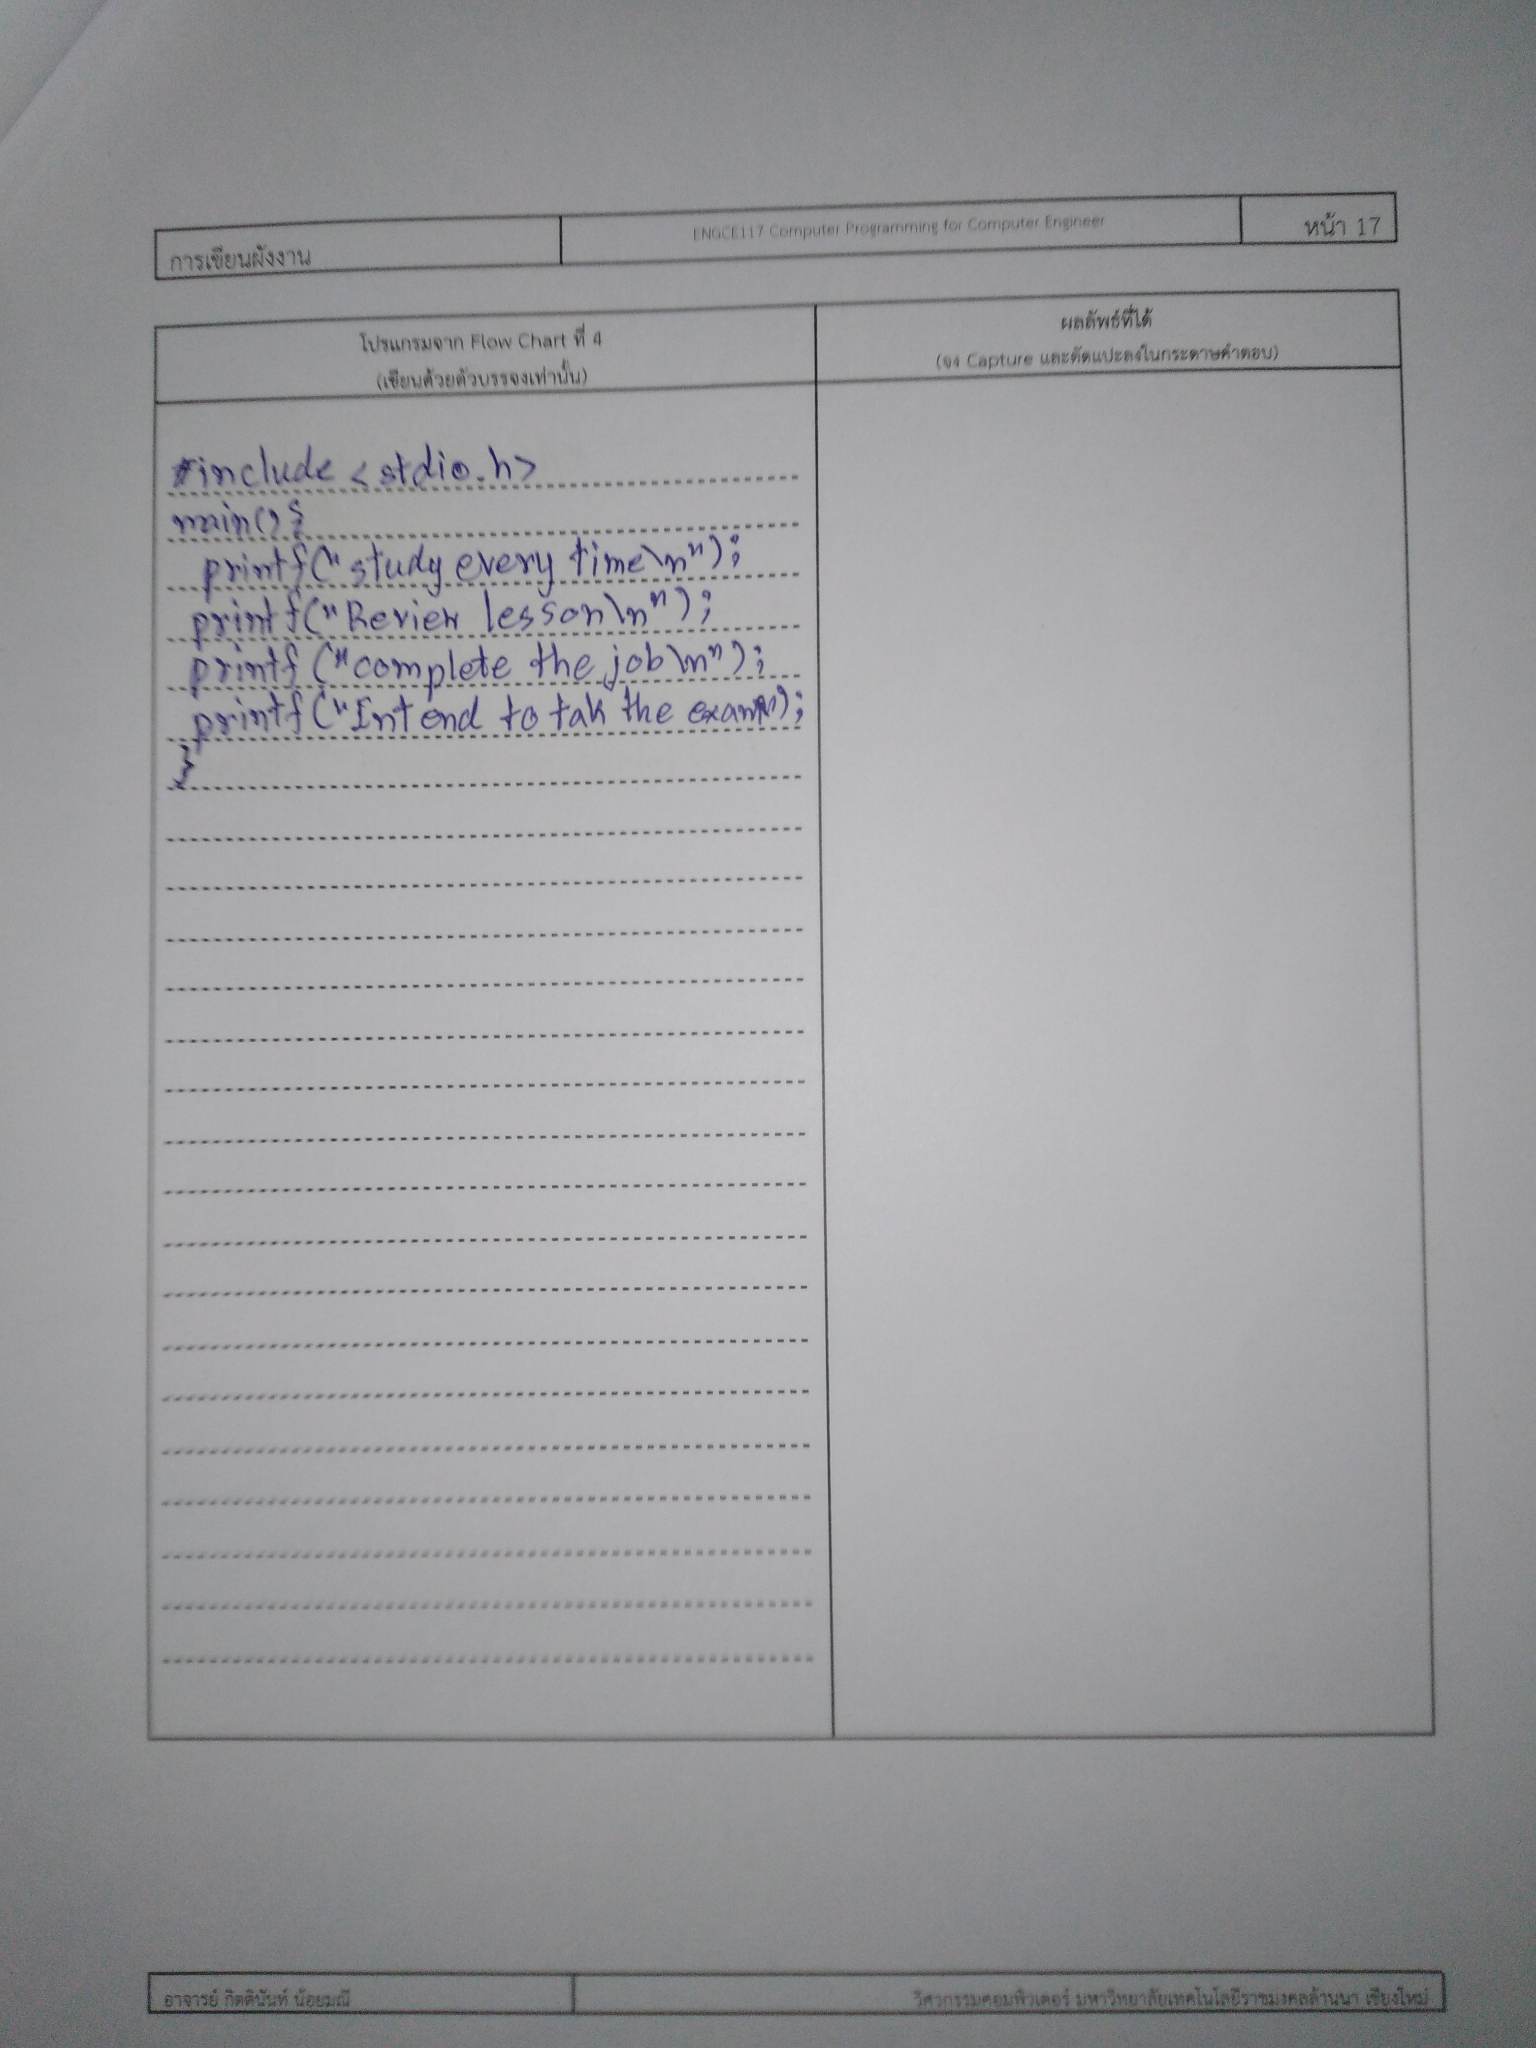 การเขียนผังงาน
ENGCE117 Computer Programming for Computer Engineer
หน้า 17
โปรแกรมจาก Flow Chart ที่ 4
(เขียนด้วยตัวบรรจงเท่านั้น)
ผลลัพธ์ที่ได้
(จง Capture และตัดแปะลงในกระดาษคำตอบ)
#include <stdio.h>
main(){
printf("study every time\n");
printf("Review lesson\n");
printf("complete the job\n");
printf("Intend to tak the exam");
}
อาจารย์ กิตตินันท์ น้อยมณี
วิศวกรรมคอมพิวเตอร์ มหาวิทยาลัยเทคโนโลยีราชมงคลล้านนา เชียงใหม่